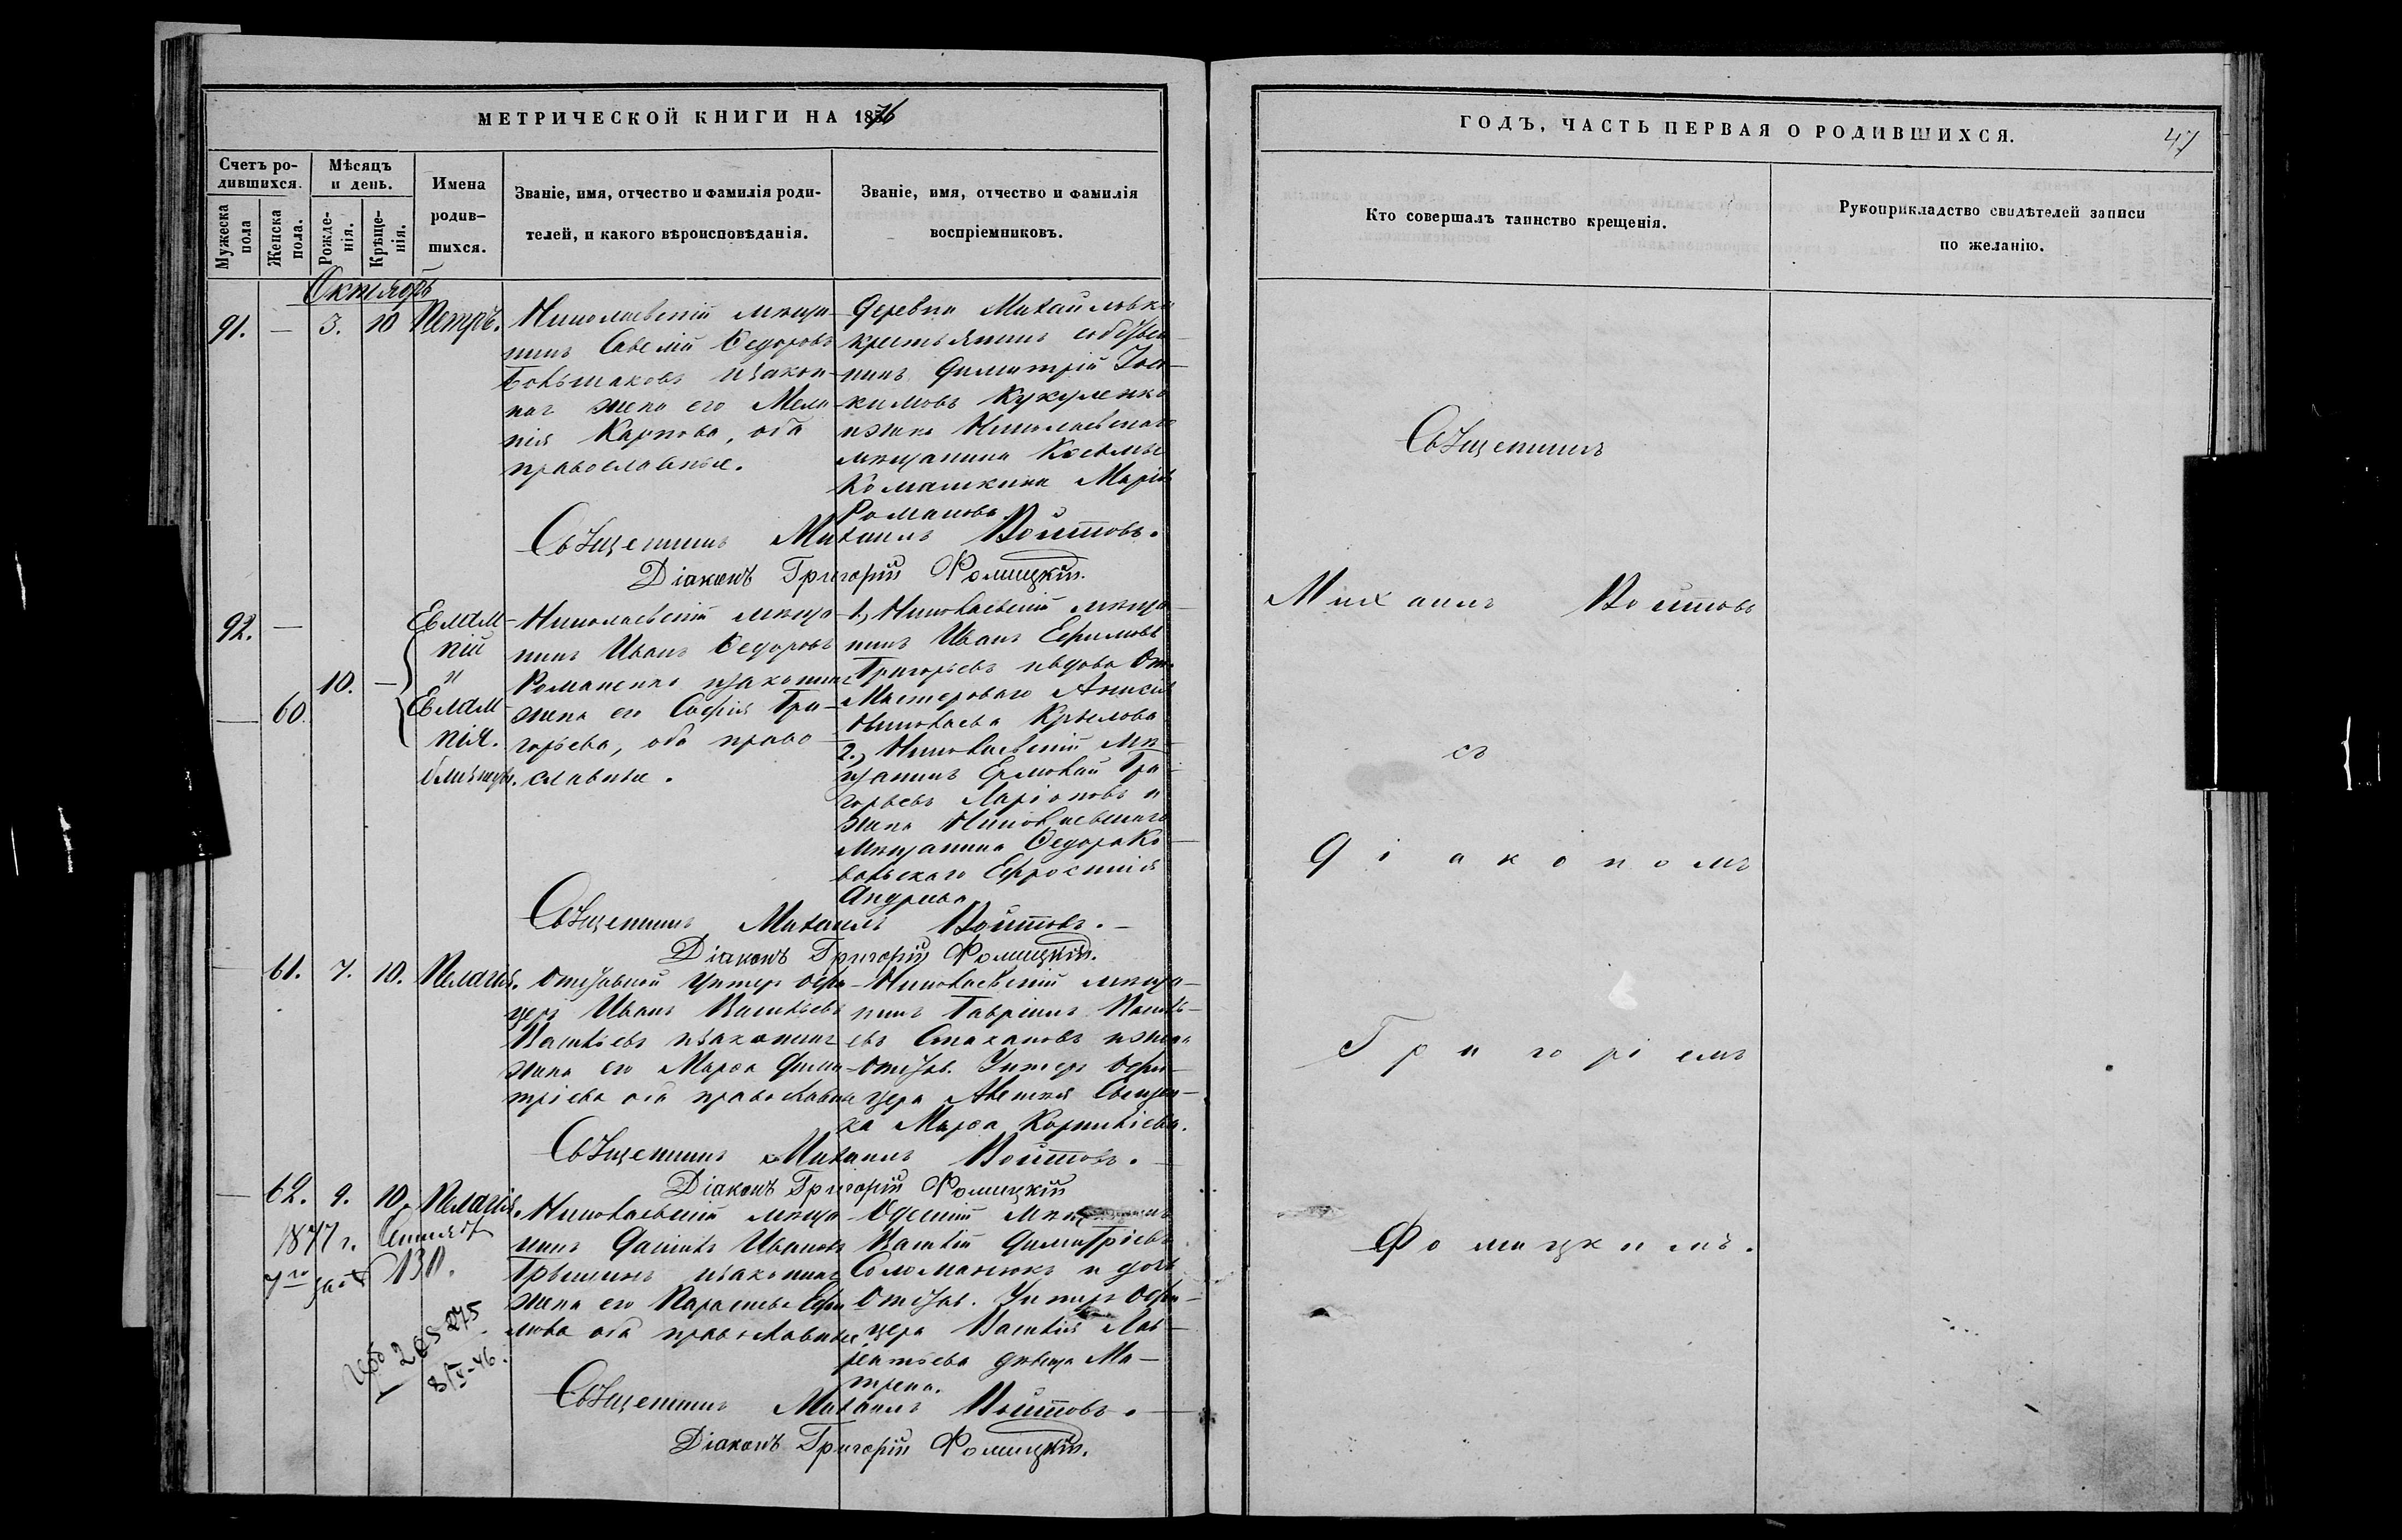 МЕТРИЧЕСКОЙ КНИГИ НА 1876
ГОДЪ, ЧАСТЬ ПЕРВАЯ О РОДИВШИХСЯ.
47
Счетъ ро-
дившихся.
Мужеска
пола
Женска
пола.
Мѣсяцъ
и день.
Рожде-
нія.
Крѣще-
нія.
Имена
родив-
шихся.
Званіе, имя, отчество и фамилія роди-
телей, и какого вѣроисповѣданія.
Званіе, имя, отчество и фамилія
воспріемниковъ.
Кто совершалъ таинство крещенія.
Рукоприкладство свидѣтелей записи
по желанію.
Октябрь
91. — 3. 10 Петръ.
Николаевскій мѣща-
нинъ Савелій Ѳедоровъ
Большаковъ и законъ-
ная жена его Мела-
нія Карпова, оба
православные.
Деревни Михайловки
крестьянинъ собствен-
никъ Димитрій Іоа-
кимовъ Кукуленко
и жена Николаевскаго
мѣщанина Космы
Комашкина Марія
Романова
Священникъ Михаилъ Войтовъ.
Діаконъ Григорій Фомицкій.
92. —
— 60.
10. —
Евлам-
пій
и
Евлам-
пія.
близнецы.
Николаевскій мѣща-
нинъ Иванъ Ѳедоровъ
Романенко и законная
жена его Софія Гри-
горьева, оба право-
славные.
1, Николаевскій мѣща-
нинъ Иванъ Ефимовъ
Григорьевъ и вдова От.
Мастероваго Анисія
Николаева Крылова
2, Николаевскій мѣ-
щанинъ Ермолай Гри-
горьевъ Ларіоновъ и
жена Николаевскаго
мѣщанина Ѳедора Ко-
вальскаго Ефросинія
Андреева
Священникъ Михаилъ Войтовъ.
Діаконъ Григорій Фомицкій.
— 61. 7. 10. Пелагія.
Отставной Унтеръ Офи-
церъ Иванъ Васильевъ
Васильевъ и законная
жена его Марѳа Дими-
тріева оба православные
Николаевскій мѣща-
нинъ Гавріилъ Василь-
евъ Стакановъ и жена
Отстав. Унтеръ Офи-
цера Алексѣя
Марѳа Корнильева.
Священникъ Михаилъ Войтовъ.
Діаконъ Григорій Фомицкій
— 62. 9. 10. Пелагія.
1877 г.
7го
265-275
8/X-46.
Николаевскій мѣща-
нинъ Даніилъ Ивановъ
и законная
жена его Параскева Ефи-
мова оба православные
Одесскій мѣщанинъ
Василій Димитріевъ
Соломанюкъ и дочь
Отстав. Унтеръ Офи-
цера Василія Лав-
рентьева дѣвица Ма-
трена.
Священникъ Михаилъ Войтовъ.
Діаконъ Григорій Фомицкій.
Священникъ
Михаилъ Войтовъ
съ
Діакономъ
Григоріемъ
Фомицкимъ.